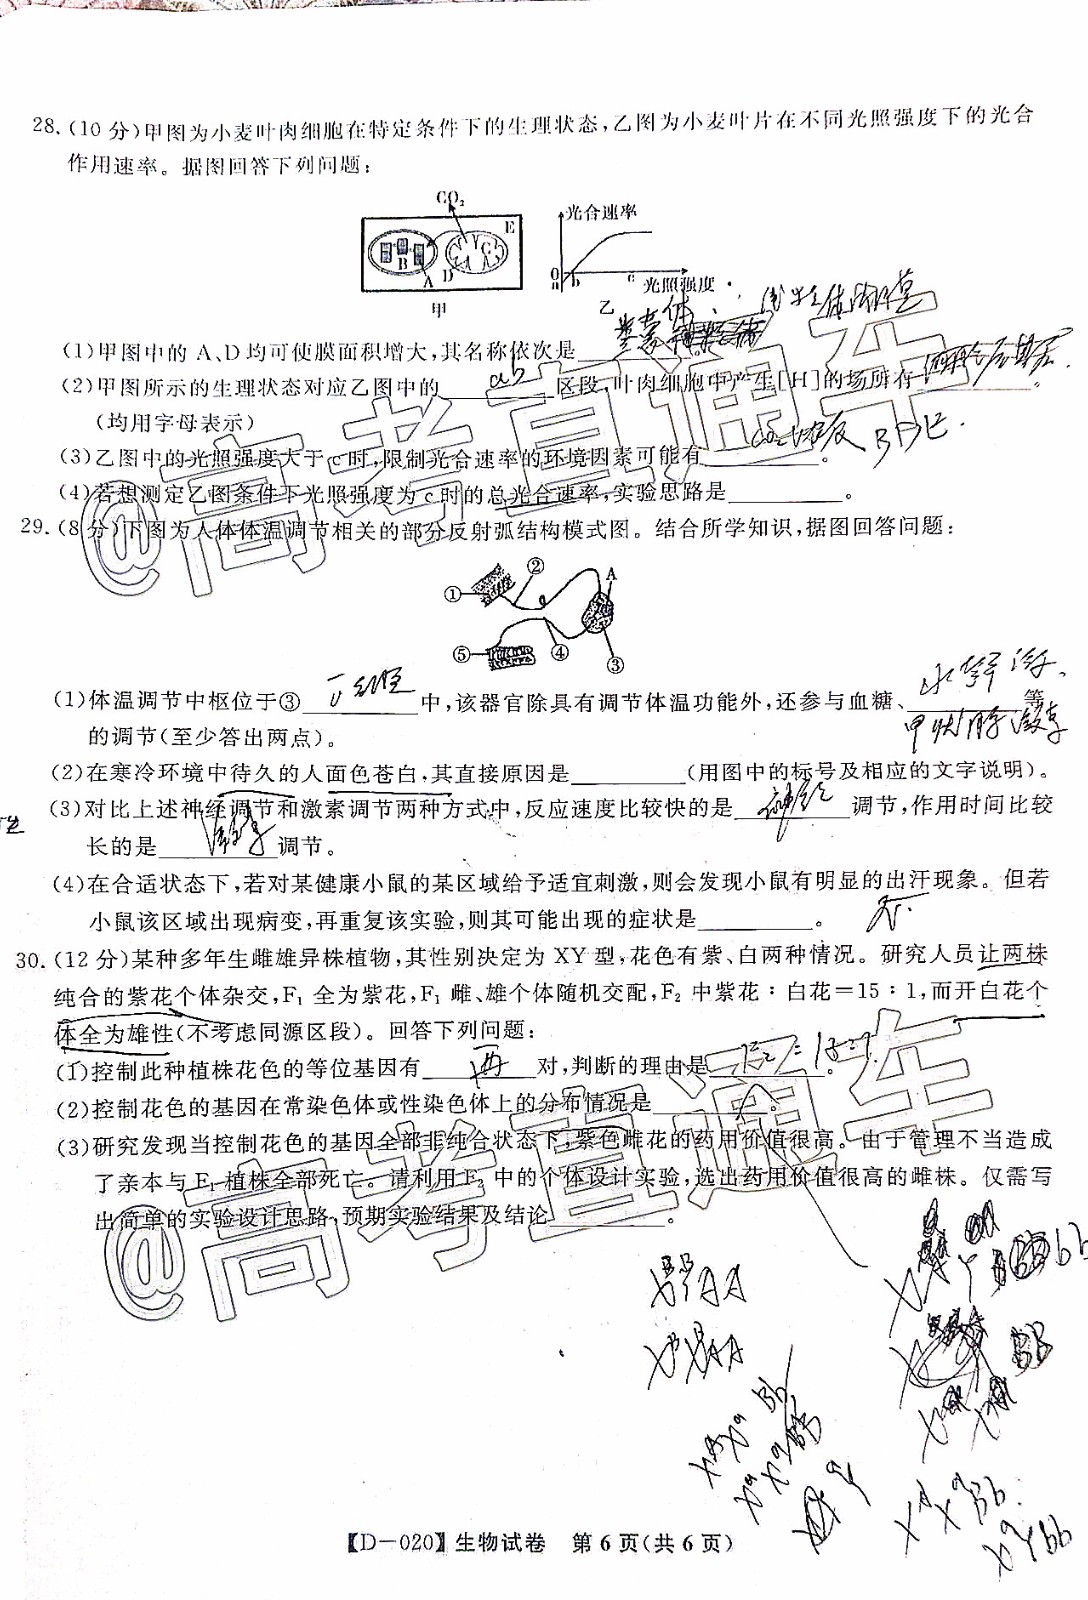 28.(10分)甲图为小麦叶肉细胞在特定条件下的生理状态,乙图为小麦叶片在不同光照强度下的光合
作用速率。据图回答下列问题:
CO₂
E
B
C
A
D
甲
光合速率
O
a
b
c
光照强度
乙
(1)甲图中的A、D均可使膜面积增大,其名称依次是__________
(2)甲图所示的生理状态对应乙图中的 ab 区段,叶肉细胞中产生[H]的场所有__________。
(均用字母表示)
BDE.
(3)乙图中的光照强度大于c时,限制光合速率的环境因素可能有__________。
(4)若想测定乙图条件下光照强度为c时的总光合速率,实验思路是__________。
29.(8分)下图为人体体温调节相关的部分反射弧结构模式图。结合所学知识,据图回答问题:
①
②
A
⑤
④
③
(1)体温调节中枢位于③__________中,该器官除具有调节体温功能外,还参与血糖、__________等
的调节(至少答出两点)。
(2)在寒冷环境中待久的人面色苍白,其直接原因是__________(用图中的标号及相应的文字说明)。
(3)对比上述神经调节和激素调节两种方式中,反应速度比较快的是 神经 调节,作用时间比较
长的是 激素 调节。
(4)在合适状态下,若对某健康小鼠的某区域给予适宜刺激,则会发现小鼠有明显的出汗现象。但若
小鼠该区域出现病变,再重复该实验,则其可能出现的症状是__________。
30.(12分)某种多年生雌雄异株植物,其性别决定为XY型,花色有紫、白两种情况。研究人员让两株
纯合的紫花个体杂交,F₁全为紫花,F₁雌、雄个体随机交配,F₂中紫花:白花=15:1,而开白花个
体全为雄性(不考虑同源区段)。回答下列问题:
(1)控制此种植株花色的等位基因有 两 对,判断的理由是__________。
(2)控制花色的基因在常染色体或性染色体上的分布情况是__________。
(3)研究发现当控制花色的基因全部非纯合状态下,紫色雌花的药用价值很高。由于管理不当造成
了亲本与F₁植株全部死亡。请利用F₂中的个体设计实验,选出药用价值很高的雌株。仅需写
出简单的实验设计思路,预期实验结果及结论__________。
【D-020】生物试卷 第6页(共6页)
@高考直通车
@高考直通车